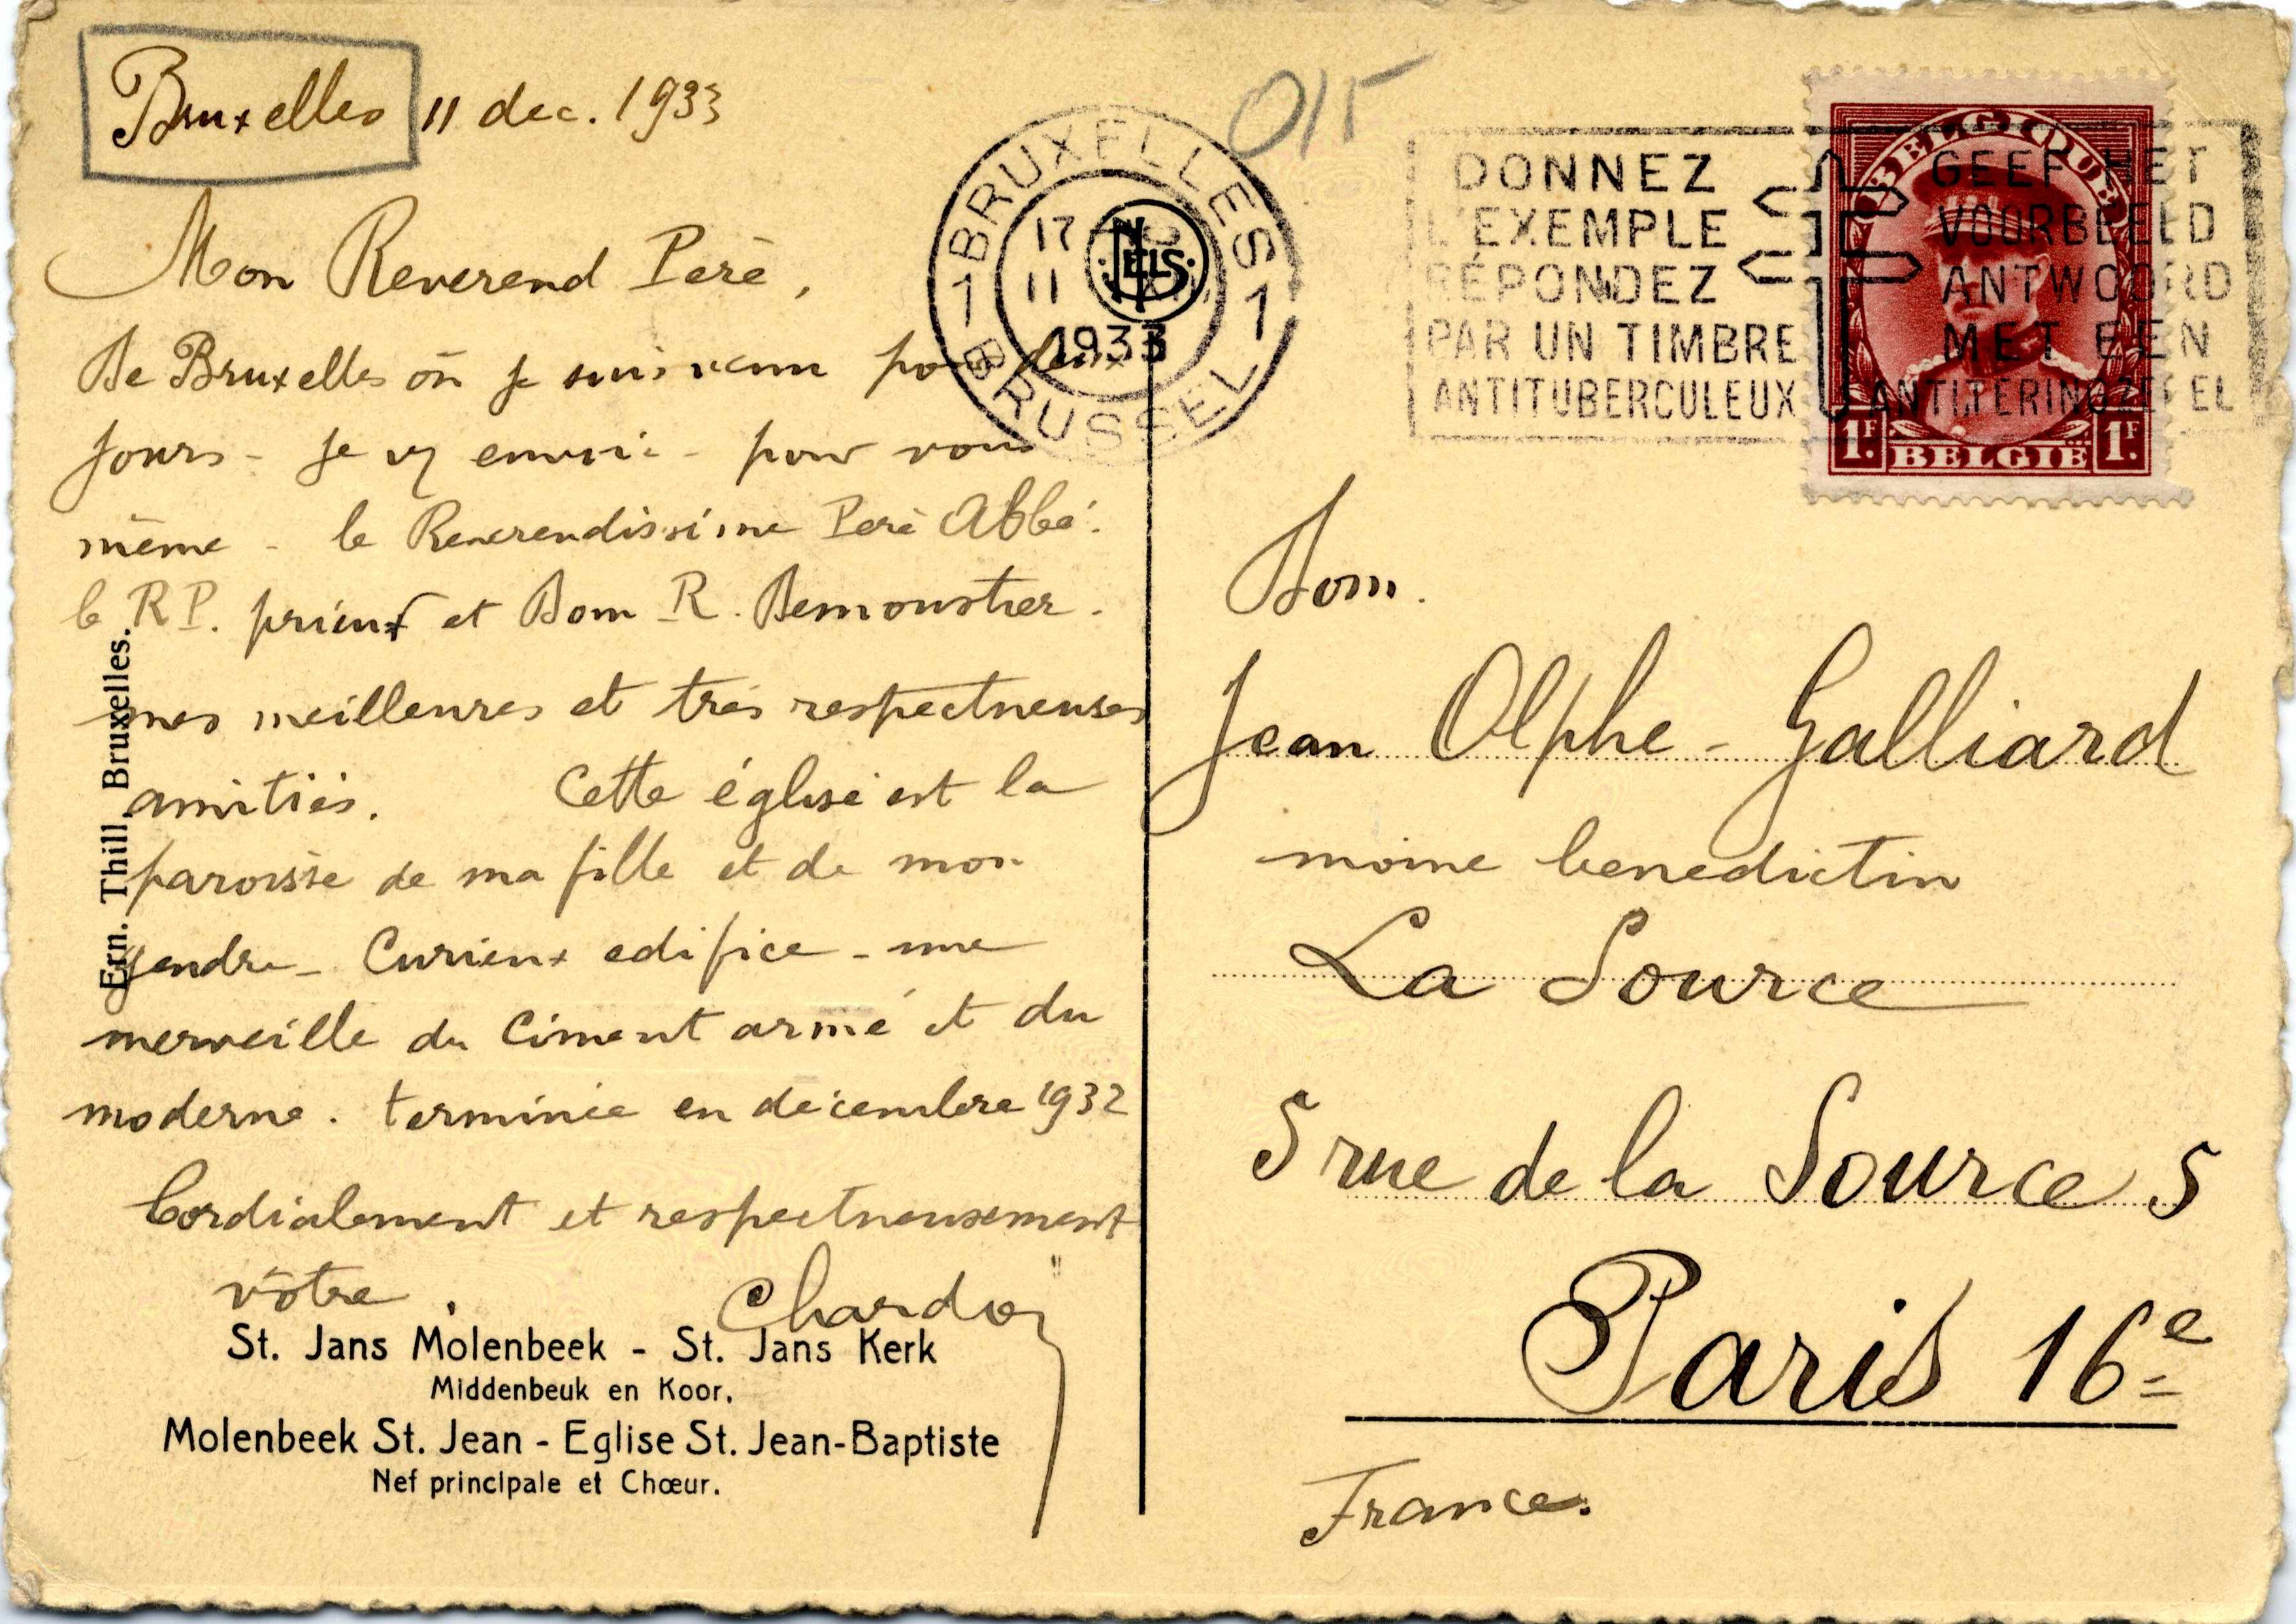 Bruxelles 11 dec. 1933
Mon Reverend Père,
De Bruxelles où je suis venu pour deux
jours - je vs envoie - pour vous
même - le Reverendissime Père Abbé.
le R P. prieur et Dom R. Demoustier.
mes meilleures et très respectueuses
amitiés. Cette église est la
paroisse de ma fille et de mon
gendre - Curieux edifice - une
merveille du Ciment armé et du
moderne. terminée en décembre 1932
Cordialement et respectueusement
vôtre.
Chardon
St. Jans Molenbeek - St. Jans Kerk
Middenbeuk en Koor.
Molenbeek St. Jean - Eglise St. Jean-Baptiste
Nef principale et Chœur.
Ern. Thill, Bruxelles.
NELS
015
1 BRUXELLES 1
17
11
1933
BRUSSEL
DONNEZ
L'EXEMPLE
RÉPONDEZ
PAR UN TIMBRE
ANTITUBERCULEUX
GEEF HET
VOORBEELD
ANTWOORD
MET EEN
ANTITERINGZEGEL
BELGIQUE
1F. BELGIË 1F.
Dom.
Jean Olphe-Galliard
moine benedictin
La Source
5 rue de la Source 5
Paris 16e
France.